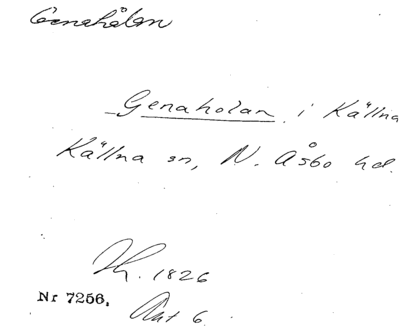 Genahålan
Genaholan i Källna
Källna sn, N. Åsbo hd.
Kh. 1826
Nr 7256.
Akt 6